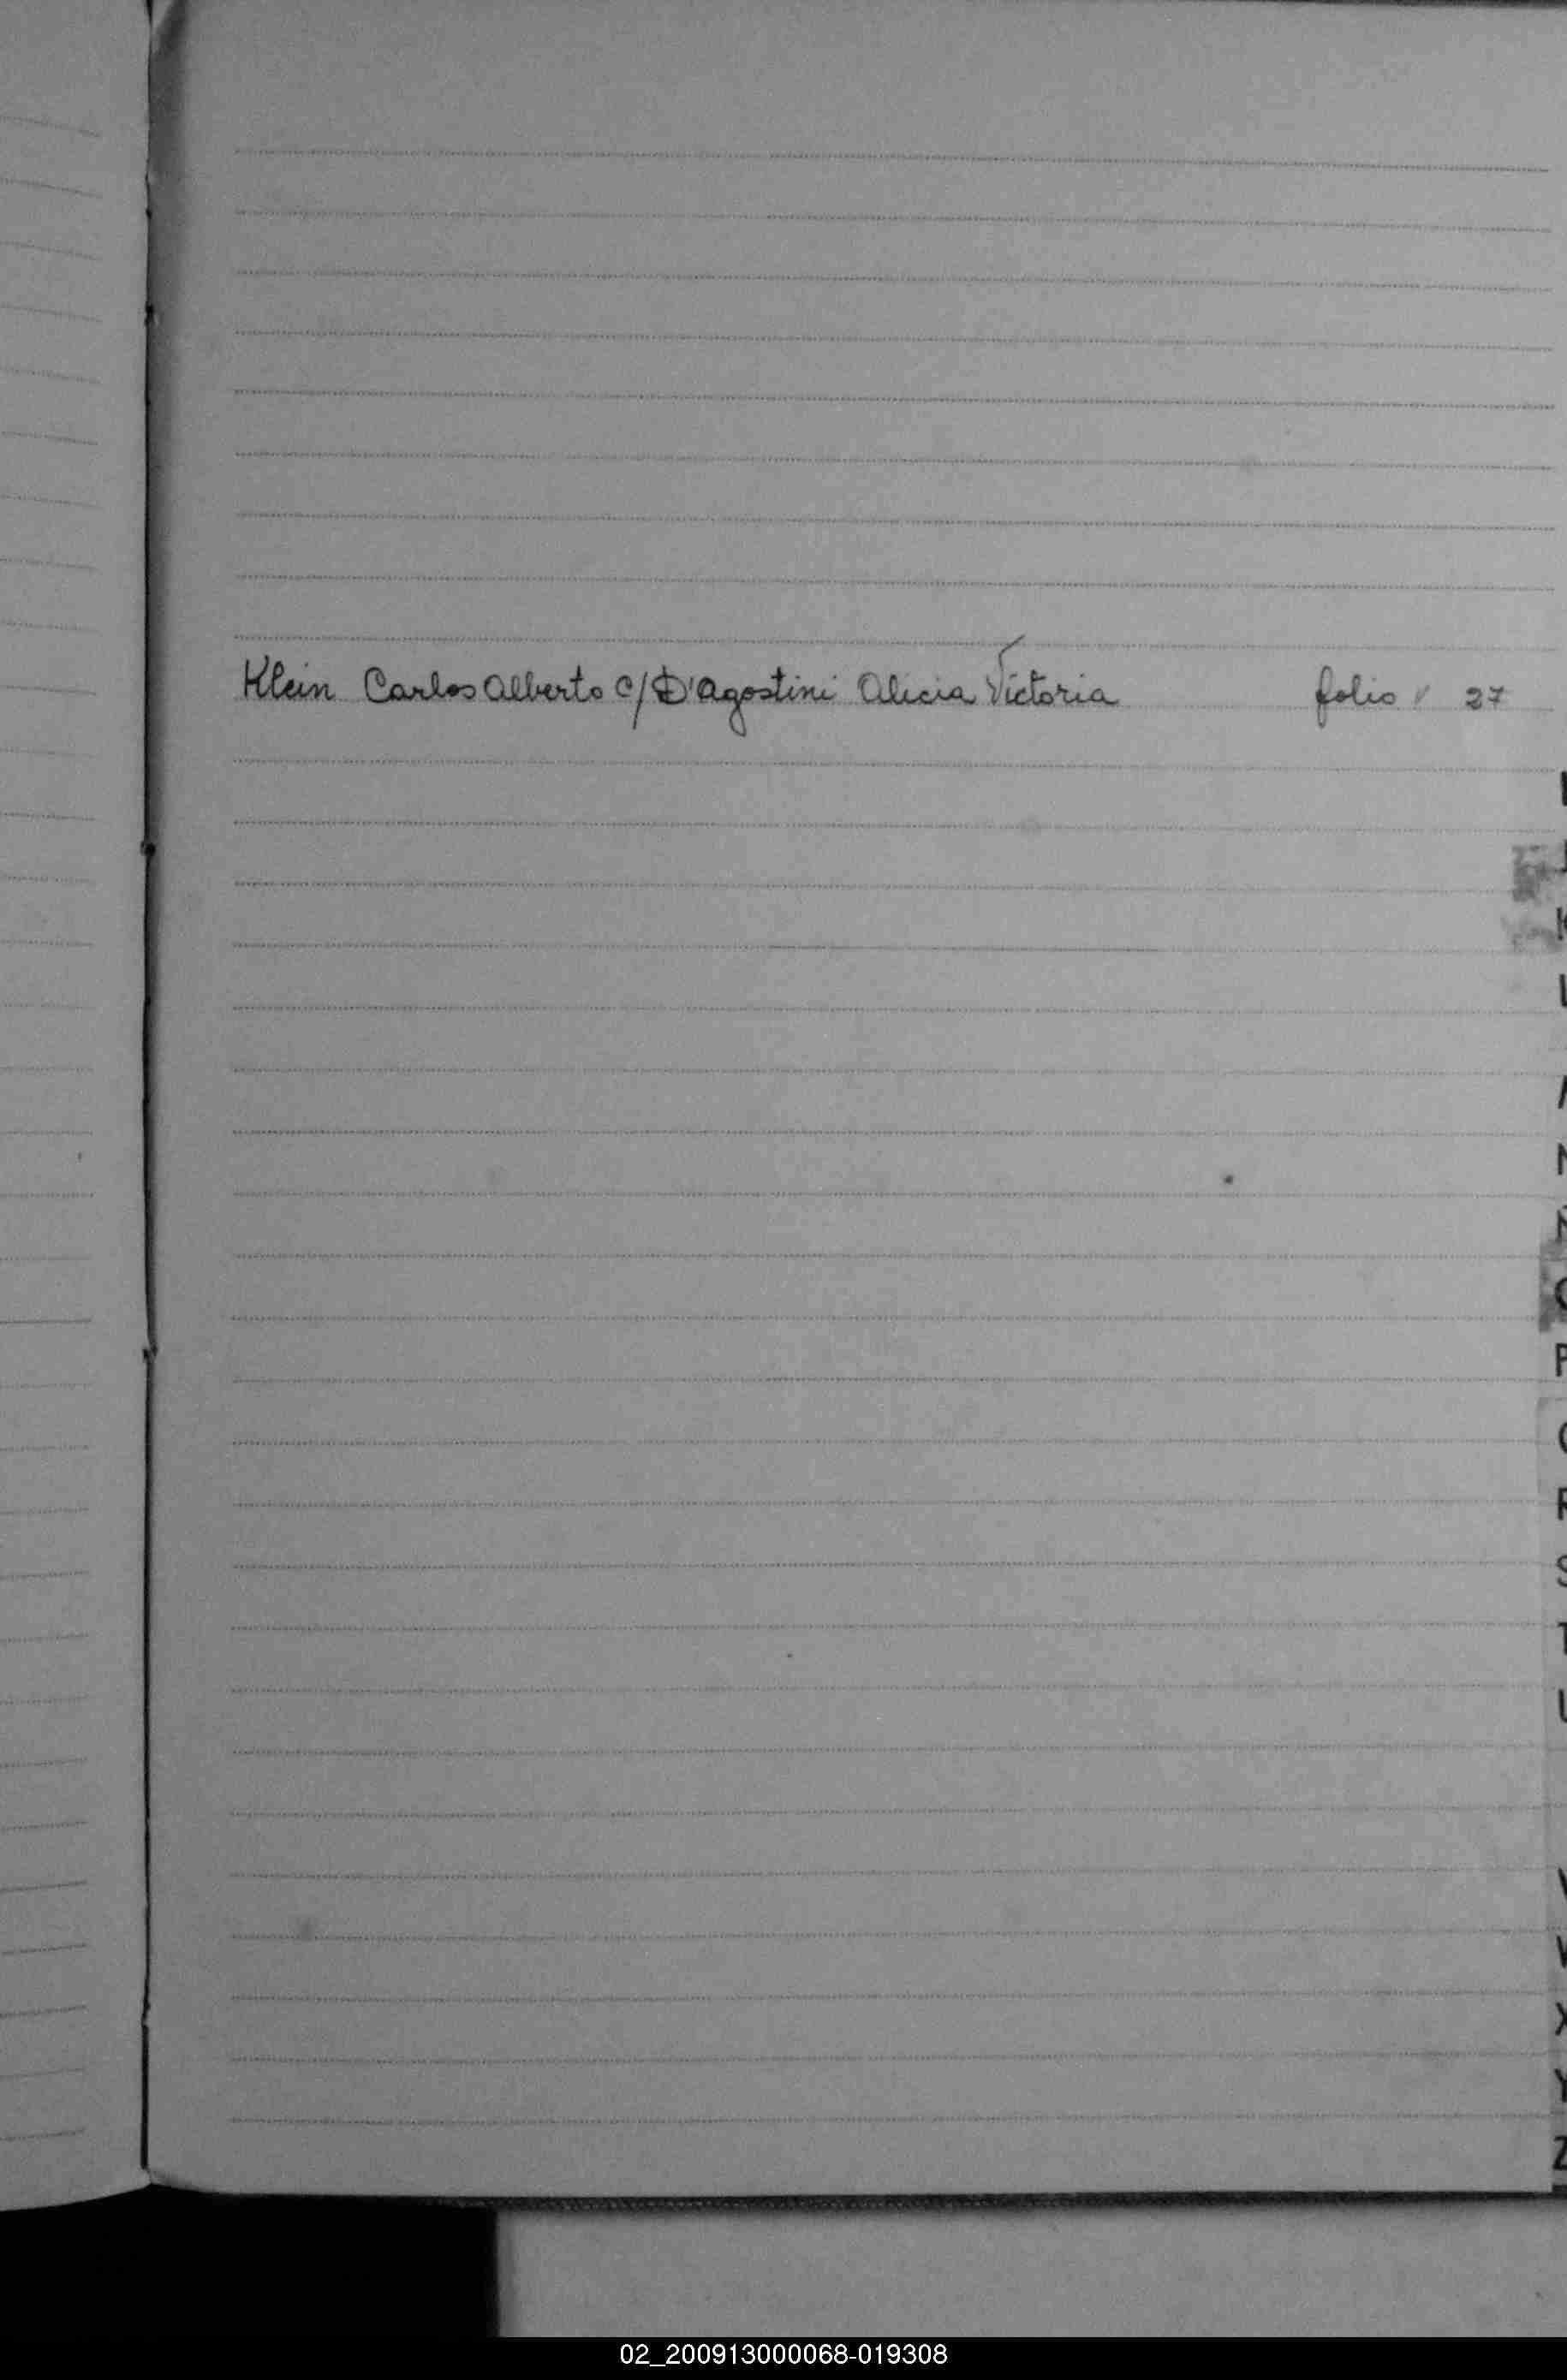 Klein Carlos Alberto c/ D'Agostini Alicia Victoria folio 27
K
P
R
S
T
U
X
Y
Z
02_200913000068-019308